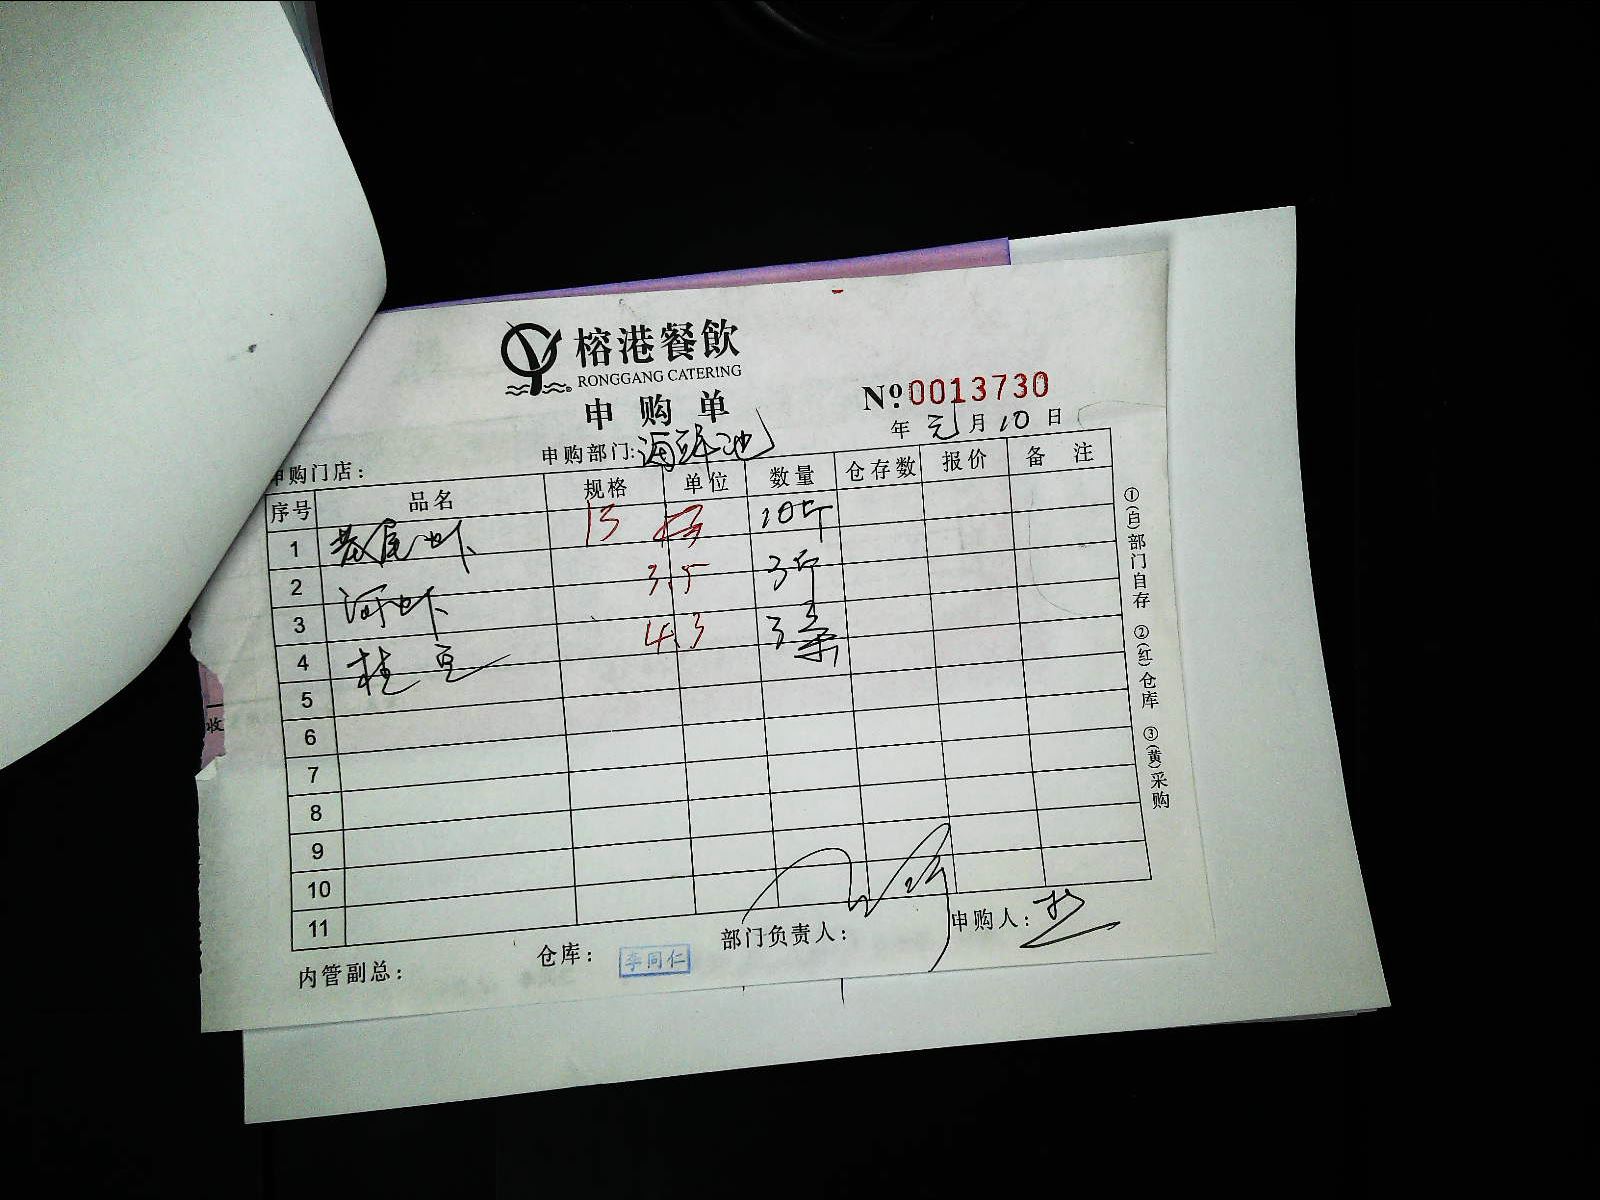 榕港餐飲
RONGGANG CATERING
申购单
№ 0013730
年 元月 10 日
申购门店： 申购部门：海鲜池
序号 品名 规格 单位 数量 仓存数 报价 备注
1 基尾虾 10斤
2 河虾 3.5 3斤
3 4.3 3条
4 桂
5
6
7
8
9
10
11
内管副总： 仓库： 李同仁 部门负责人： 申购人：
①(白)部门自存 ②(红)仓库 ③(黄)采购
收